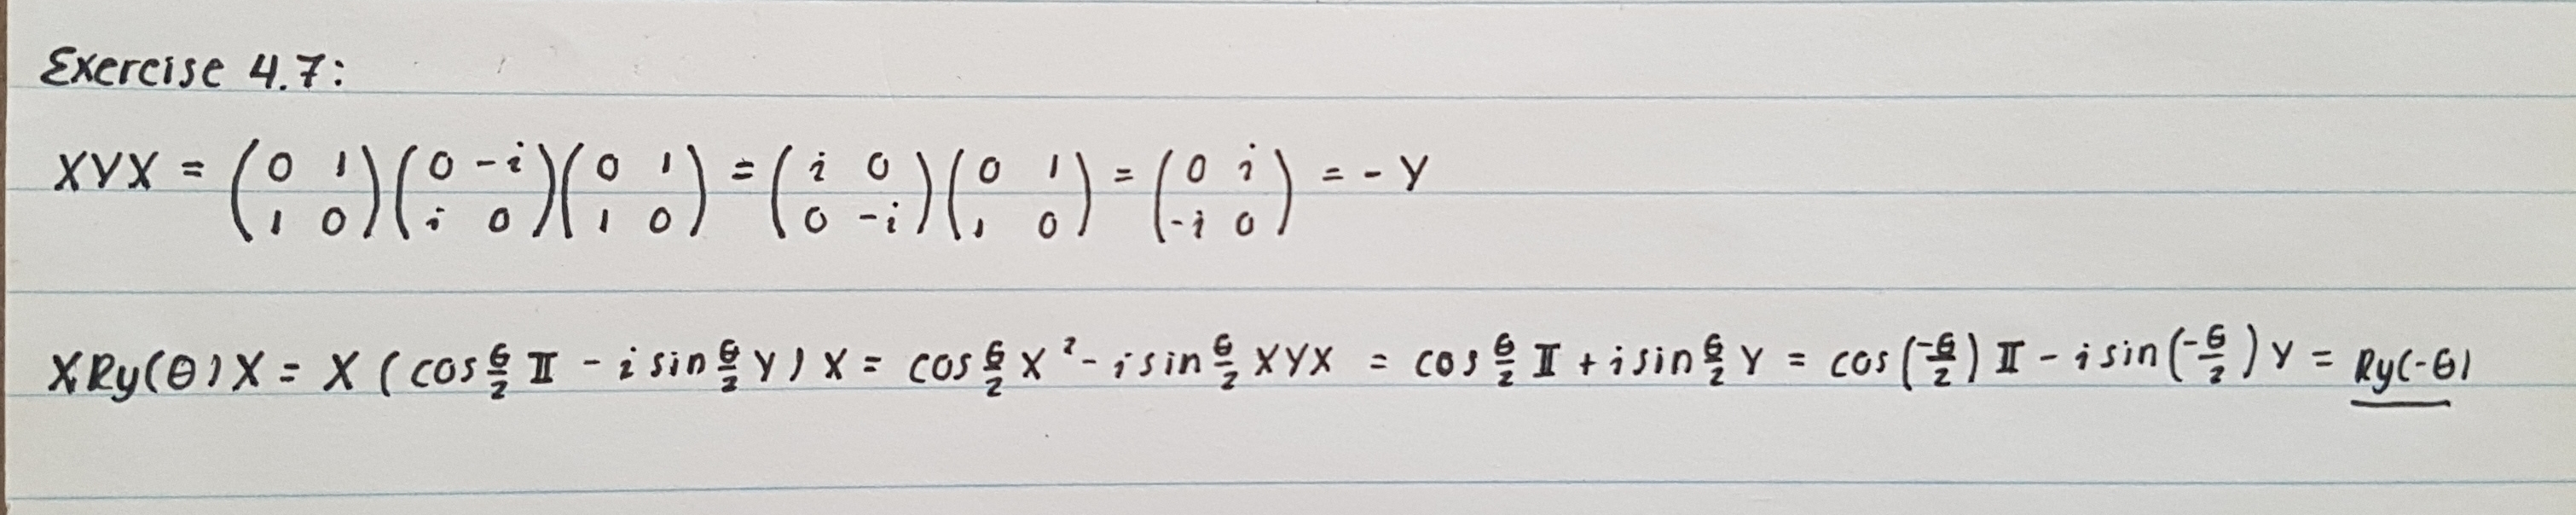 Exercise 4.7:
XYX = (0 1; 1 0)(0 -i; i 0)(0 1; 1 0) = (i 0; 0 -i)(0 1; 1 0) = (0 i; -i 0) = - Y
XRy(θ)X = X (cos θ/2 𝕀 - i sin θ/2 Y) X = cos θ/2 X² - i sin θ/2 XYX = cos θ/2 𝕀 + i sin θ/2 Y = cos(-θ/2) 𝕀 - i sin(-θ/2) Y = Ry(-θ)